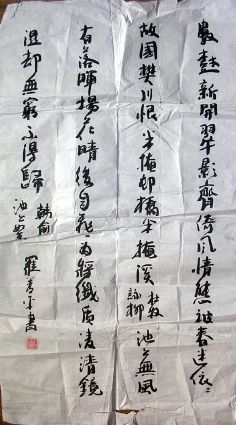 數樹新開翠影齊倚風情態被春迷依〻
故國樊川恨半掩邨橋半掩溪 杜牧詠柳 池上無風
有落暉楊花晴後自飛〻為將纖質凌清鏡
濕却無窮不得歸 韓愈 池上絮 羅書